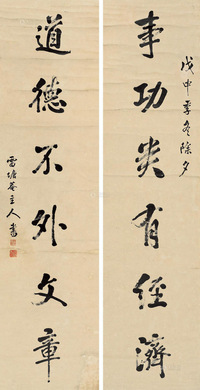 戊申季冬除夕
事功有經濟
道德不外文章
雷塘菴主人書